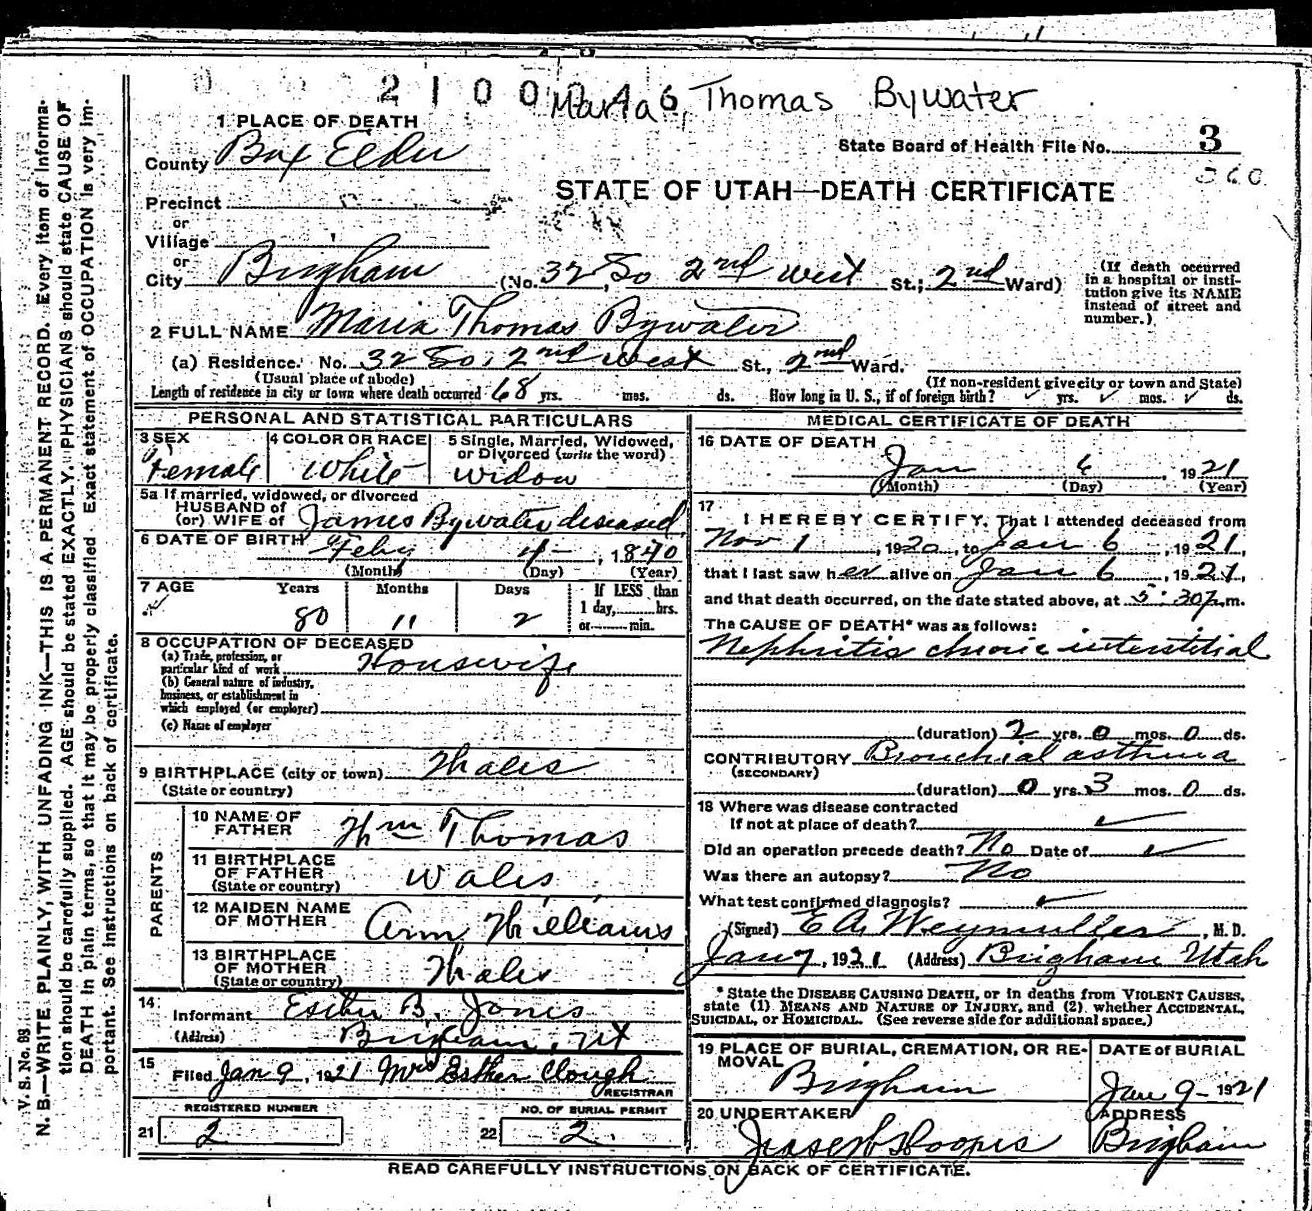 2100
Maria Thomas Bywater
1 PLACE OF DEATH
County Box Elder
State Board of Health File No. 3
360
STATE OF UTAH—DEATH CERTIFICATE
Precinct
or
Village
or
City Brigham (No. 32 So 2nd west St.; 2nd Ward)
(If death occurred
in a hospital or insti-
tution give its NAME
instead of street and
number.)
2 FULL NAME Maria Thomas Bywater
(a) Residence. No. 32 So. 2nd west St., 2nd Ward.
(Usual place of abode) (If non-resident give city or town and State)
Length of residence in city or town where death occurred 68 yrs. mos. ds. How long in U. S., if of foreign birth? yrs. mos. ds.
PERSONAL AND STATISTICAL PARTICULARS
3 SEX
Female
4 COLOR OR RACE
White
5 Single, Married, Widowed,
or Divorced (write the word)
widow
5a If married, widowed, or divorced
HUSBAND of
(or) WIFE of James Bywater deseased
6 DATE OF BIRTH Feby 4 – , 1840
(Month) (Day) (Year)
7 AGE Years Months Days
80 11 2
If LESS than
1 day, hrs.
or min.
8 OCCUPATION OF DECEASED
(a) Trade, profession, or
particular kind of work Housewife
(b) General nature of industry,
business, or establishment in
which employed (or employer)
(c) Name of employer
9 BIRTHPLACE (city or town) Wales
(State or country)
PARENTS
10 NAME OF
FATHER Wm Thomas
11 BIRTHPLACE
OF FATHER
(State or country) Wales
12 MAIDEN NAME
OF MOTHER Ann Williams
13 BIRTHPLACE
OF MOTHER
(State or country) Wales
14
Informant Esther B. Jones
(Address) Brigham, Ut
15
Filed Jan 9, 1921 Mrs Esther Clough
REGISTRAR
REGISTERED NUMBER
21 2
NO. OF BURIAL PERMIT
22 2.
MEDICAL CERTIFICATE OF DEATH
16 DATE OF DEATH
Jan 6, 1921
(Month) (Day) (Year)
17
I HEREBY CERTIFY, That I attended deceased from
Nov 1, 1920, to Jan 6, 1921,
that I last saw her alive on Jan 6, 1921,
and that death occurred, on the date stated above, at 5:30 p.m.
The CAUSE OF DEATH* was as follows:
Nephritis chronic interstitial
(duration) 2 yrs. 0 mos. 0 ds.
CONTRIBUTORY Bronchial asthma
(SECONDARY)
(duration) 0 yrs. 3 mos. 0 ds.
18 Where was disease contracted
If not at place of death?
Did an operation precede death? No Date of
Was there an autopsy? No
What test confirmed diagnosis?
(Signed) E A Weymuller, M. D.
Jan 7, 1921 (Address) Brigham Utah
* State the DISEASE CAUSING DEATH, or in deaths from VIOLENT CAUSES,
state (1) MEANS AND NATURE OF INJURY, and (2) whether ACCIDENTAL,
SUICIDAL, or HOMICIDAL. (See reverse side for additional space.)
19 PLACE OF BURIAL, CREMATION, OR RE-
MOVAL
Brigham
DATE of BURIAL
Jan 9 – 1921
20 UNDERTAKER
ADDRESS
Brigham
READ CAREFULLY INSTRUCTIONS ON BACK OF CERTIFICATE.
V. S. No. 88
N. B.—WRITE PLAINLY, WITH UNFADING INK—THIS IS A PERMANENT RECORD. Every item of informa-
tion should be carefully supplied. AGE should be stated EXACTLY. PHYSICIANS should state CAUSE OF
DEATH in plain terms, so that it may be properly classified. Exact statement of OCCUPATION is very im-
portant. See instructions on back of certificate.